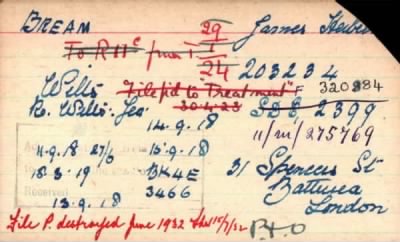 BREAM James Herbert
29
To R 11c from 1
24 203234
Wilts "File p'd to Treatment" F 320884
30.4.23 SDB 2399
R. Wilts. Yes. 11/M/275769
14.9.18
11.9.18 27/6 13.9.18 31 Spencer St
18.3.19 BK4E Battersea
Received 3466 London
13.9.18
File P. destroyed June 1932 15/7/32